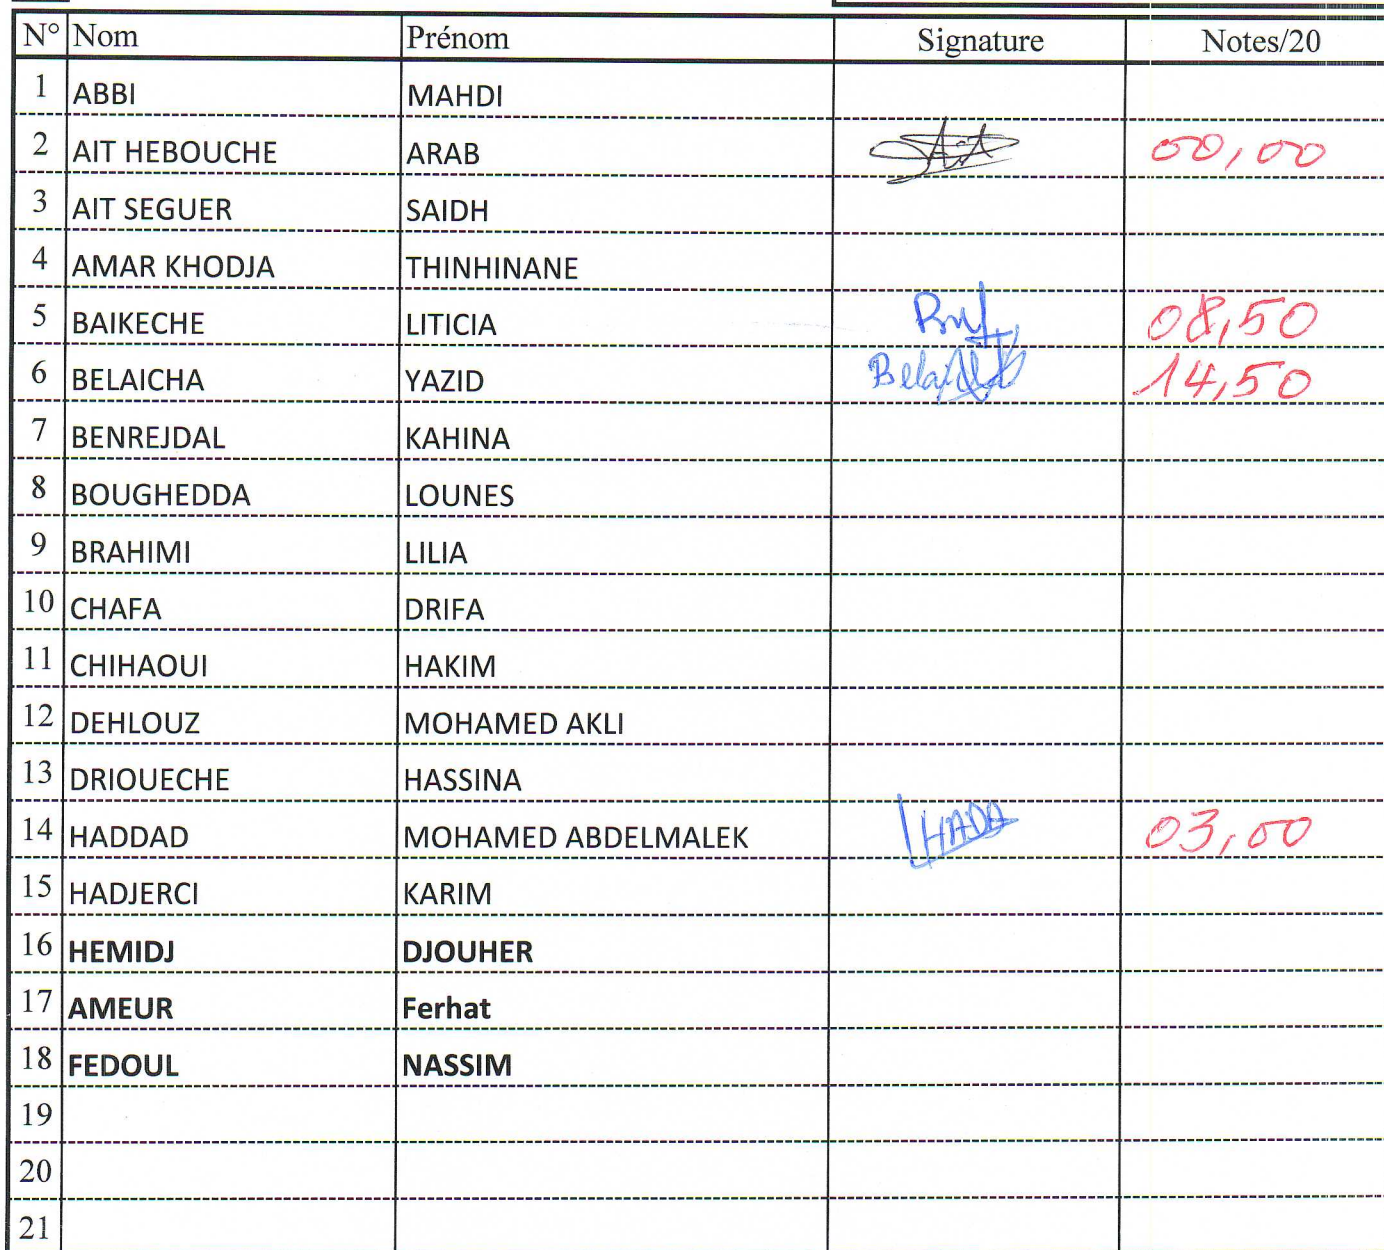 N° Nom Prénom Signature Notes/20
1 ABBI MAHDI
2 AIT HEBOUCHE ARAB Ait 00,00
3 AIT SEGUER SAIDH
4 AMAR KHODJA THINHINANE
5 BAIKECHE LITICIA 08,50
6 BELAICHA YAZID 14,50
7 BENREJDAL KAHINA
8 BOUGHEDDA LOUNES
9 BRAHIMI LILIA
10 CHAFA DRIFA
11 CHIHAOUI HAKIM
12 DEHLOUZ MOHAMED AKLI
13 DRIOUECHE HASSINA
14 HADDAD MOHAMED ABDELMALEK HADA 03,00
15 HADJERCI KARIM
16 HEMIDJ DJOUHER
17 AMEUR Ferhat
18 FEDOUL NASSIM
19
20
21